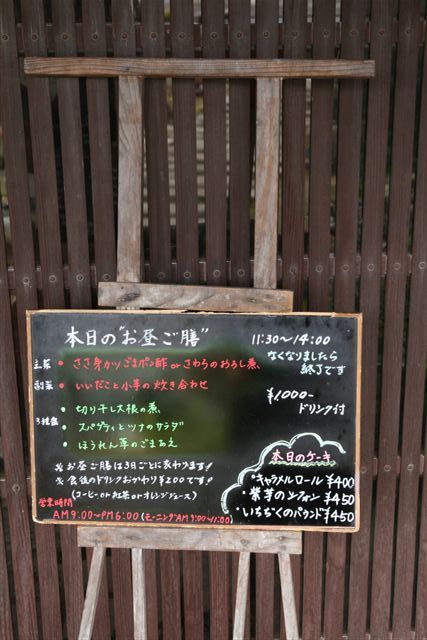 本日の"お昼ご膳"
11:30～14:00
なくなりましたら
終了です
主菜 • ささ身カツごまポン酢 or さわらのおろし煮
副菜 • いいだこと小芋の炊き合わせ
¥1,000-
ドリンク付
• 切り干し大根の煮
3種盛 • スパゲティとツナのサラダ
• ほうれん草のごまあえ
※お昼ご膳は3日ごとに変わります!
※食後のドリンクおかわり¥200です!
(コーヒー or 紅茶 or オレンジジュース)
営業時間
AM9:00～PM6:00 (モーニングAM9:00～11:00)
本日のケーキ
• キャラメルロール ¥400
• 紫芋のシフォン ¥450
• いちぢくのパウンド ¥450